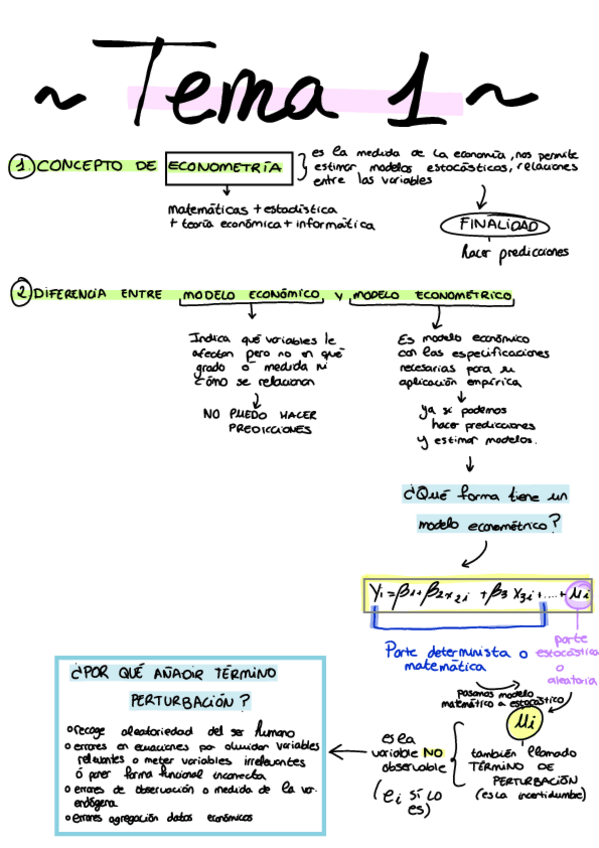 ~ Tema 1 ~
① CONCEPTO DE ECONOMETRÍA
es la medida de la economía, nos permite
estimar modelos estocásticos, relaciones
entre las variables
matemáticas + estadística
+ teoría económica + informática
FINALIDAD
hacer predicciones
② DIFERENCIA ENTRE MODELO ECONÓMICO y MODELO ECONOMÉTRICO
Indica qué variables le
afectan pero no en qué
grado o medida ni
cómo se relacionan
NO PUEDO HACER
PREDICCIONES
Es modelo económico
con las especificaciones
necesarias para su
aplicación empírica
ya sí podemos
hacer predicciones
y estimar modelos.
¿Qué forma tiene un
modelo econométrico?
Yi = β1 + β2x2i + β3 X3i + .... + μi
Parte determinista o
matemática
parte
estocástica
o
aleatoria
pasamos modelo
matemático a estocástico
μi
también llamado
TÉRMINO DE
PERTURBACIÓN
(es la incertidumbre)
es la
variable NO
observable
(ei sí lo
es)
¿POR QUÉ AÑADIR TÉRMINO
PERTURBACIÓN?
o recoge aleatoriedad del ser humano
o errores en ecuaciones por olvidar variables
relevantes o meter variables irrelevantes
ó poner forma funcional incorrecta
o errores de observación o medida de la var.
endógena
o errores agregación datos económicos